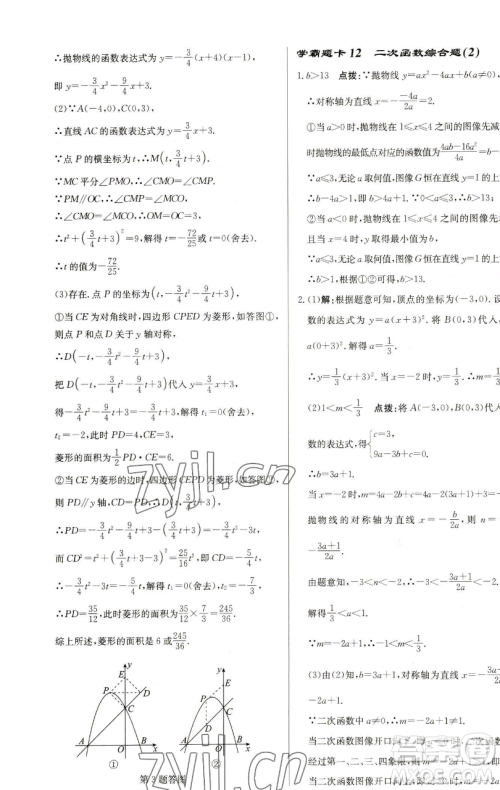 ∴抛物线的函数表达式为 y=-3/4(x+4)(x-1),
即 y=-3/4x²-9/4x+3.
(2)∵A(-4,0),C(0,3),
∴直线 AC 的函数表达式为 y=3/4x+3.
∵点 P 的横坐标为 t,∴M(t,3/4t+3).
∵MC平分∠PMO,∴∠CMO=∠CMP.
∵PM//OC,∴∠CMP=∠MCO.
∴∠CMO=∠MCO,∴OM=OC=3.
∴t²+(3/4t+3)²=9,解得 t=-72/25或 t=0(舍去).
∴t 的值为-72/25.
(3)存在.点 P 的坐标为(t,-3/4t²-9/4t+3),
①当 CE 为对角线时,四边形 CPED 为菱形,如答图①,
则点 P 和点 D 关于 y 轴对称,
∴D(-t,-3/4t²-9/4t+3),
把 D(-t,-3/4t²-9/4t+3)代入 y=3/4x+3,
得-3/4t²-9/4t+3=-3/4t+3,解得 t₁=0(舍去),
t₂=-2,此时 PD=4,CE=3,
菱形的面积为1/2PD·CE=6.
②当 CE 为菱形的边时,四边形 CEPD 为菱形,如答图②,
则 PD//y 轴,CD=PD,∴D(t,3/4t+3),
∴PD=-3/4t²-9/4t+3-3/4t-3=-3/4t²-3t,
而 CD²=t²+(3/4t+3-3)²=25/16t²,即 CD=-5/4t,
∴-3/4t²-3t=-5/4t,解得 t₁=0(舍去),t₂=-7/3,
∴PD=35/12,此时菱形的面积为35/12×7/3=245/36.
综上所述,菱形的面积是 6 或245/36.
y
E
P
D
C
A
O
B
x
①
y
E
P
C
A
O
B
x
②
第3题答图
学霸题卡12 二次函数综合题(2)
1. b>13 点拨:∵抛物线 y=ax²-4ax+b(a≠0),
∴对称轴为直线 x=--4a/2a=2.
①当 a>0 时,抛物线在 1≤x≤4 时的图像先减
时抛物线的最低点对应的函数值为4ab-16a²/4a=b-
∵a≤3,无论 a 取何值,图像 G 恒在直线 y=1 的上
∴b-4a>1,即 b>4a+1.∵0<a≤3,∴b>13;
②当 a<0 时,抛物线在 1≤x≤4 时的图像先
可知二次函数的最小值为 b.
∵a≤3,无论 a 取何值,图像 G 恒在直线 y=1 的上
∴b>1,根据①②可得,b>13.
2. (1)解:根据题意可知,顶点的坐标为(-3,0).设
数的表达式为 y=a(x+3)².将 B(0,3)代入,
a(0+3)².解得 a=1/3.
∴y=1/3(x+3)².当 x=-2 时,y=1/3.∴m=1/3.
(2)1<m<1/3 点拨:将 A(-3,0),B(0,3)代入
数的表达式,得{c=3,
9a-3b+c=0.
∴b=3a+1.
当 x=-2 时,m=4a-2b+c=4a-2(3a+1)+3=-
抛物线的对称轴为直线 x=-b/2a,则 n=
-3a+1/2a.
由题意知,-3<n<-2,∴-3<-3a+1/2a<-2.
∵m=-2a+1,∴-1<m<1/3.
(3)由(2)知,b=3a+1,对称轴为直线 x=-
∵二次函数中 a≠0,∴m=-2a+1≠1.
当二次函数图像开口
经过第一、二、三象限,
当二次函数图像开口向下时